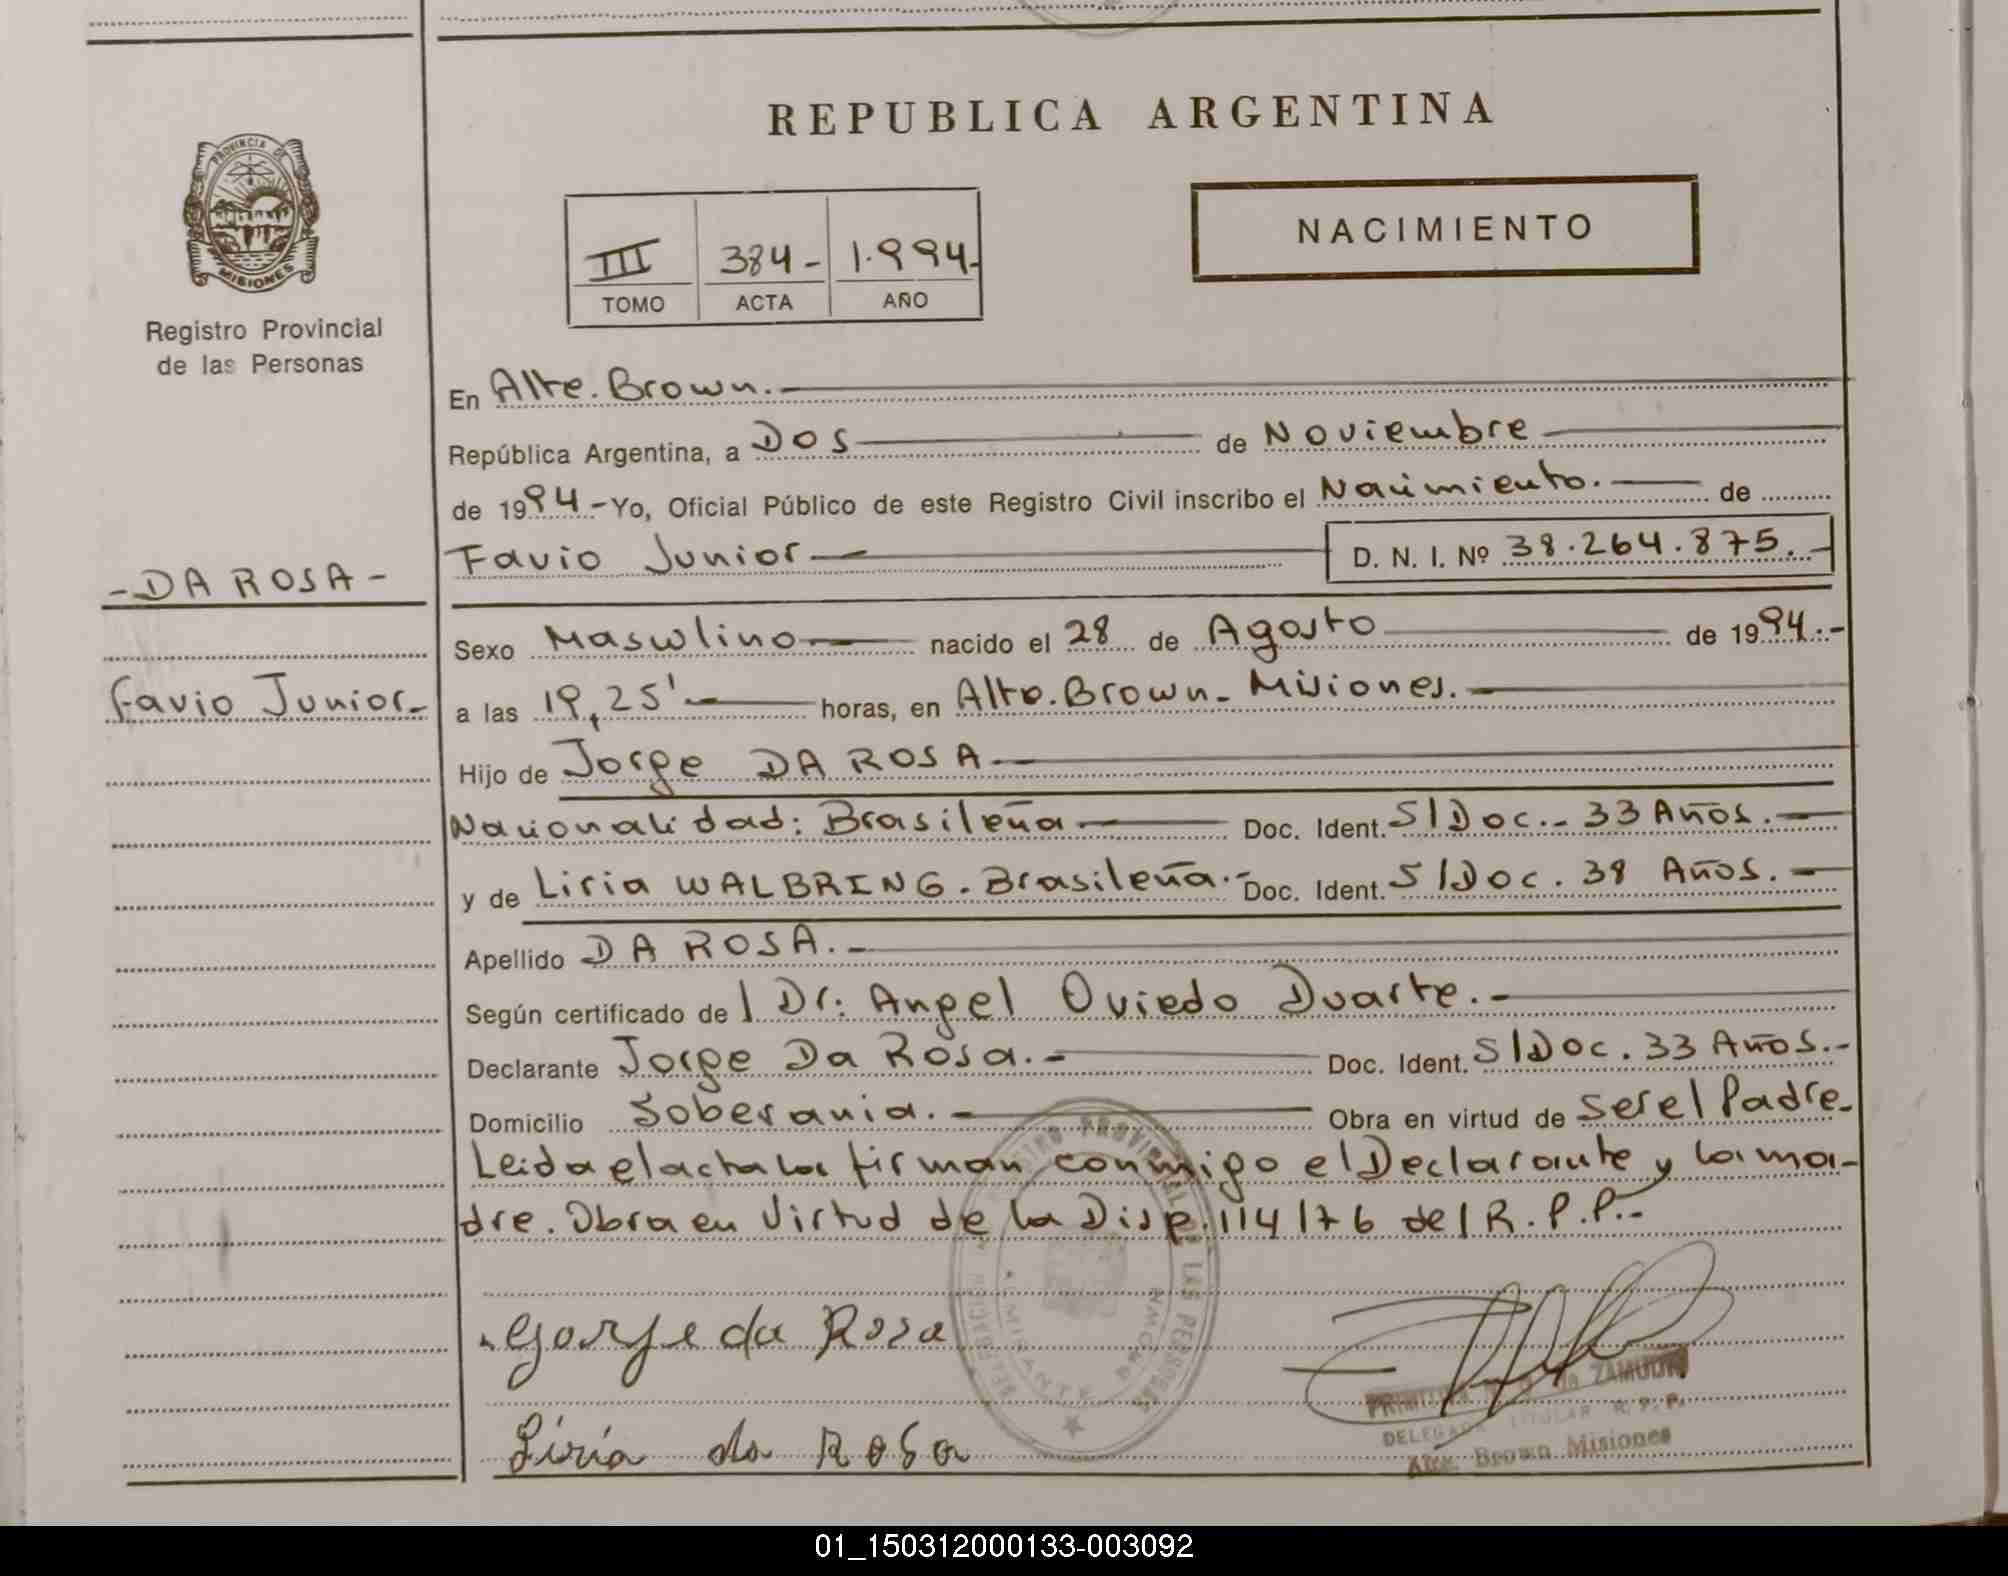 REPUBLICA ARGENTINA
PROVINCIA DE
MISIONES
Registro Provincial
de las Personas
III 384- 1.994-
TOMO ACTA AÑO
NACIMIENTO
En Alte. Brown.-
República Argentina, a Dos de Noviembre
de 1994.- Yo, Oficial Público de este Registro Civil inscribo el Nacimiento.- de
Favio Junior D. N. I. Nº 38.264.875.-
-DA ROSA-
Sexo Masculino nacido el 28 de Agosto de 1994.-
Favio Junior-
a las 19,25' horas, en Alte. Brown- Misiones.-
Hijo de Jorge DA ROSA
Nacionalidad: Brasileña Doc. Ident. S/Doc.- 33 Años.-
y de Liria WALBRING. Brasileña.- Doc. Ident. S/Doc. 38 Años.-
Apellido DA ROSA.-
Según certificado del Dr: Angel Oviedo Duarte.-
Declarante Jorge Da Rosa.- Doc. Ident. S/Doc. 33 Años.-
Domicilio Soberania.- Obra en virtud de ser el Padre-
Leida el acta la firman conmigo el Declarante y la ma-
dre. Obra en Virtud de la Disp. 114/76 del R.P.P.-
Gorge da Rosa
Liria da Rosa
REGISTRO PROVINCIAL DE LAS PERSONAS
ALMIRANTE BROWN
de ZAMUDIO
DELEGADA TITULAR R. P. P.
Alte. Brown Misiones
01_150312000133-003092